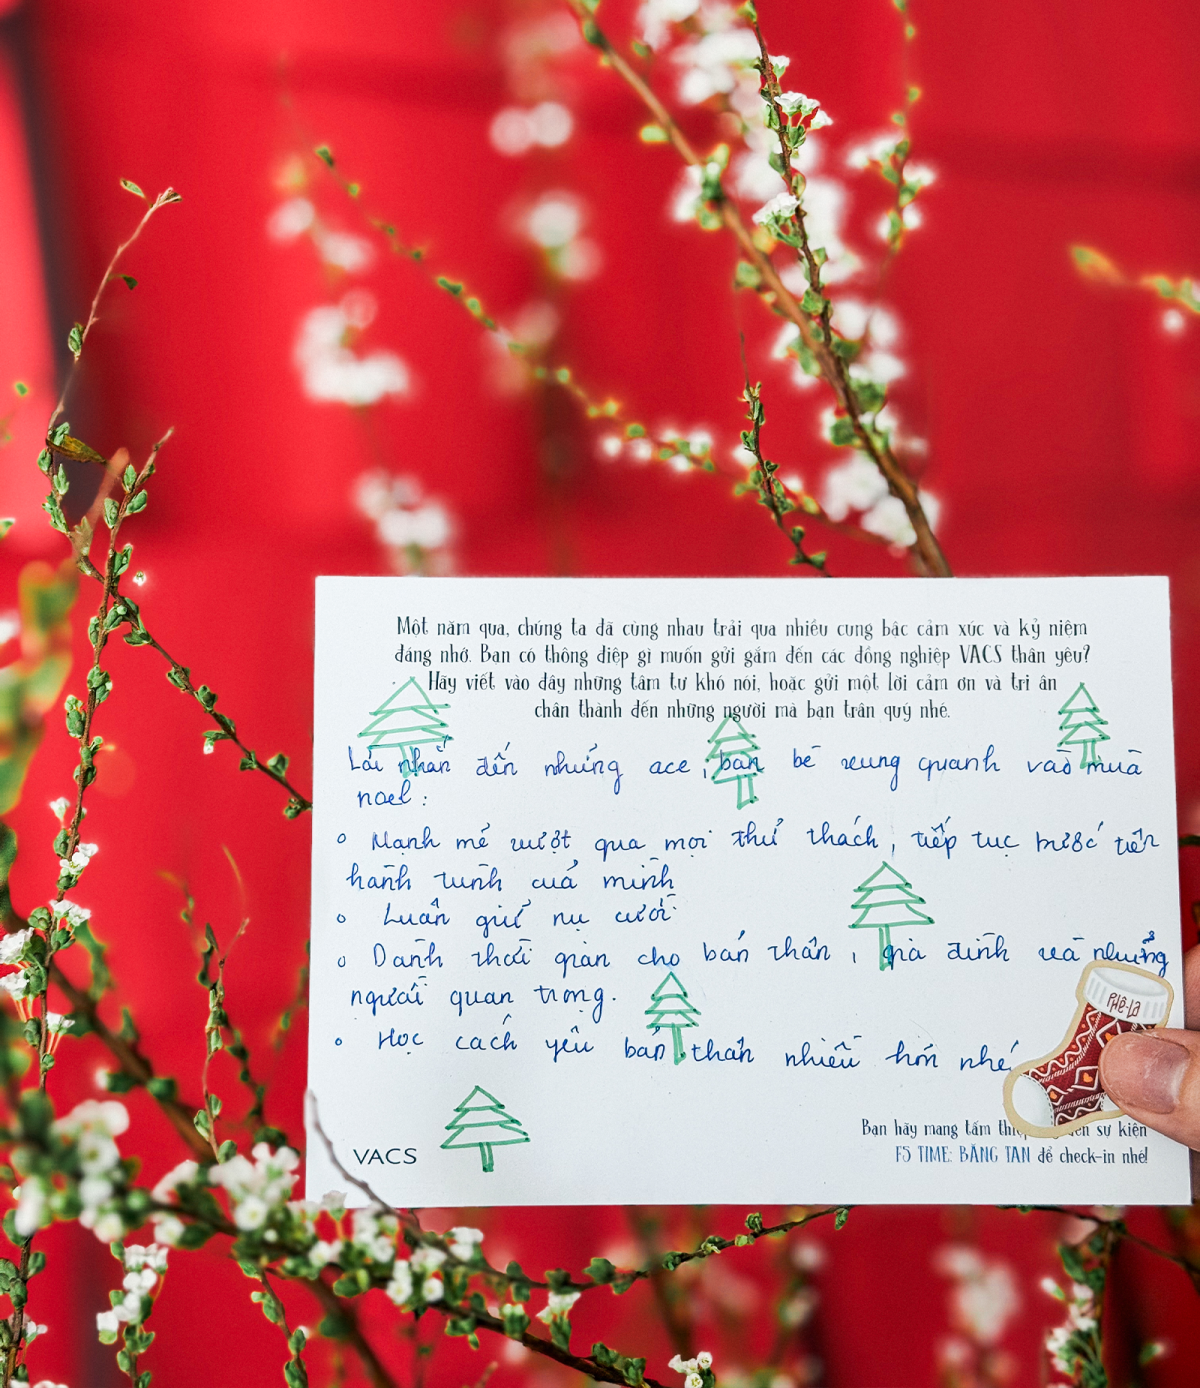 Một năm qua, chúng ta đã cùng nhau trải qua nhiều cung bậc cảm xúc và kỷ niệm
đáng nhớ. Bạn có thông điệp gì muốn gửi gắm đến các đồng nghiệp VACS thân yêu?
Hãy viết vào đây những tâm tư khó nói, hoặc gửi một lời cảm ơn và tri ân
chân thành đến những người mà bạn trân quý nhé.
Lời nhắn đến những ace, bạn bè xung quanh vào mùa
noel:
Mạnh mẽ vượt qua mọi thử thách, tiếp tục bước tiến
hành trình của mình
Luôn giữ nụ cười
Dành thời gian cho bản thân, gia đình và những
người quan trọng.
Học cách yêu bản thân nhiều hơn nhé
PHÊ-LA
Bạn hãy mang tấm đến sự kiện
VACS F5 TIME: BĂNG TAN để check-in nhé!